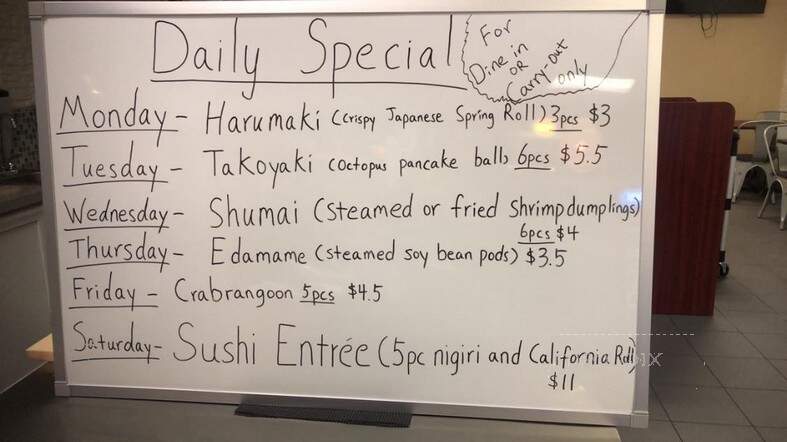 Daily Special
For
Dine in
OR
Carry-out
only
Monday - Harumaki (crispy Japanese Spring Roll) 3pcs $3
Tuesday - Takoyaki (octopus pancake balls 6pcs $5.5
Wednesday - Shumai (steamed or fried shrimp dumplings)
6pcs $4
Thursday - Edamame (steamed soy bean pods) $3.5
Friday - Crabrangoon 5pcs $4.5
Saturday - Sushi Entrée (5pc nigiri and California Roll)
$11